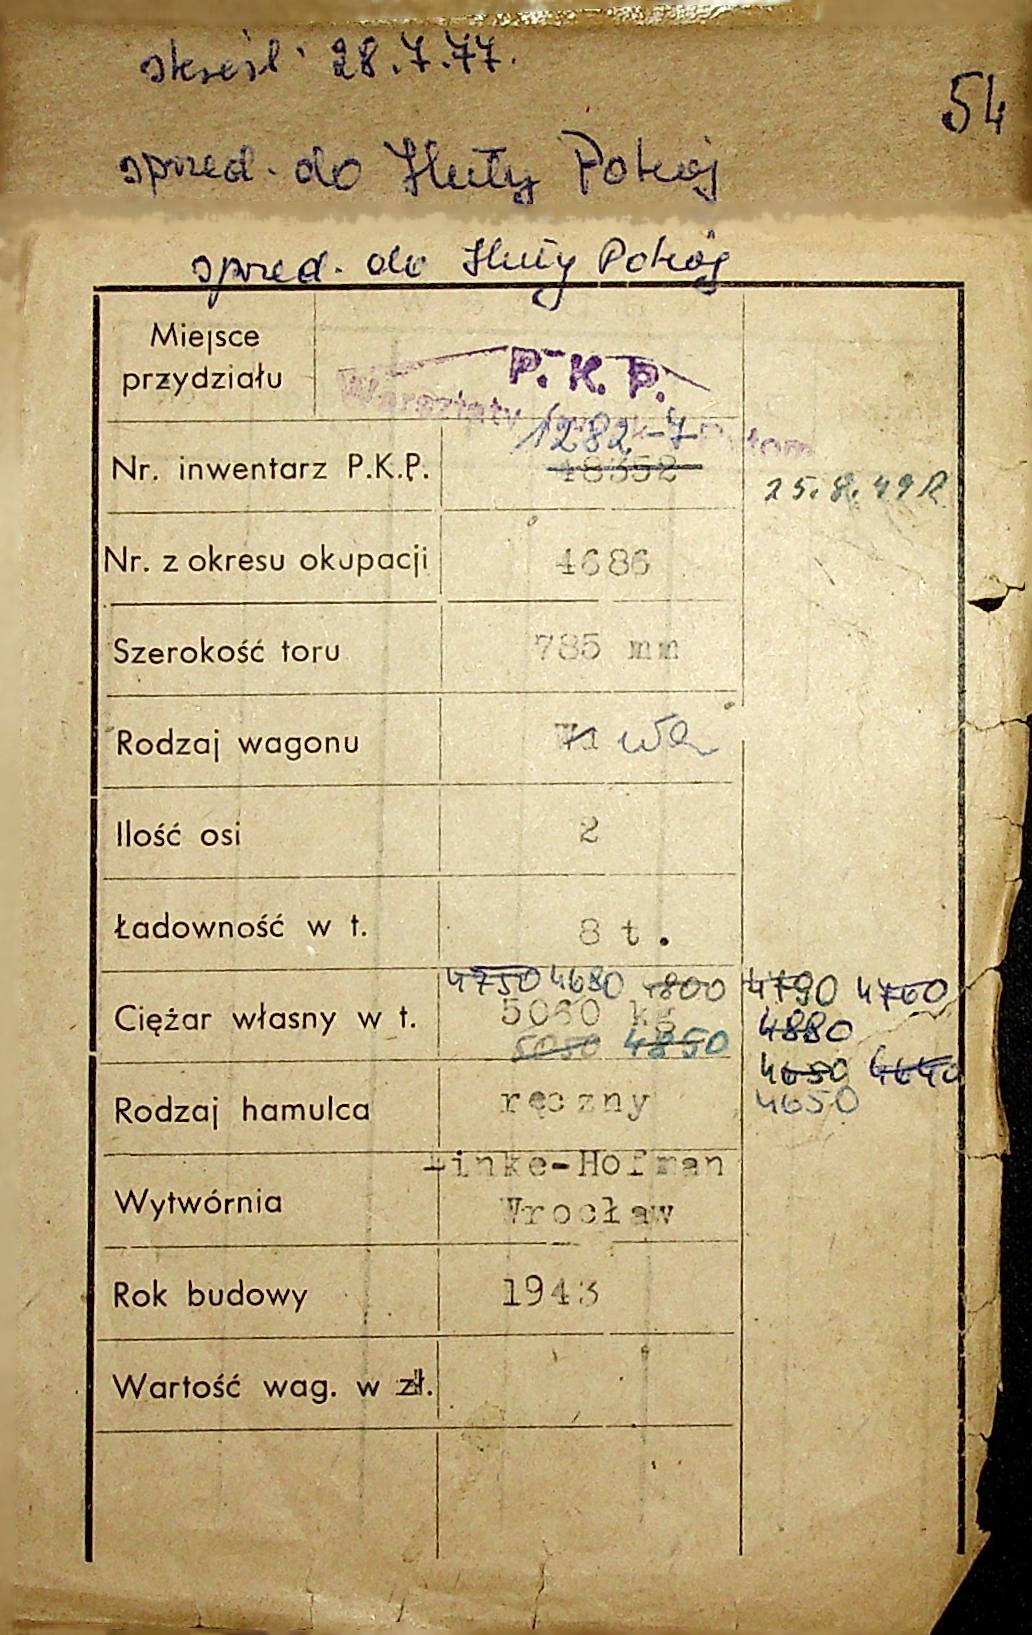 skreśl. 28.7.77.
54
sprzed. do Huty Pokój
sprzed. do Huty Pokój
Miejsce przydziału
P. K. P.
Warsztaty
1282-7
Nr. inwentarz P.K.P. 48352
25.8.49R
Nr. z okresu okupacji 4686
Szerokość toru 785 mm
Rodzaj wagonu
Ilość osi 2
Ładowność w t. 8 t.
4750 4680 4800 4790 4760
Ciężar własny w t. 5060 kg 4880
5050 4850
4650 4640
Rodzaj hamulca ręczny 4650
Linke-Hofman
Wytwórnia Wrocław
Rok budowy 1943
Wartość wag. w zł.